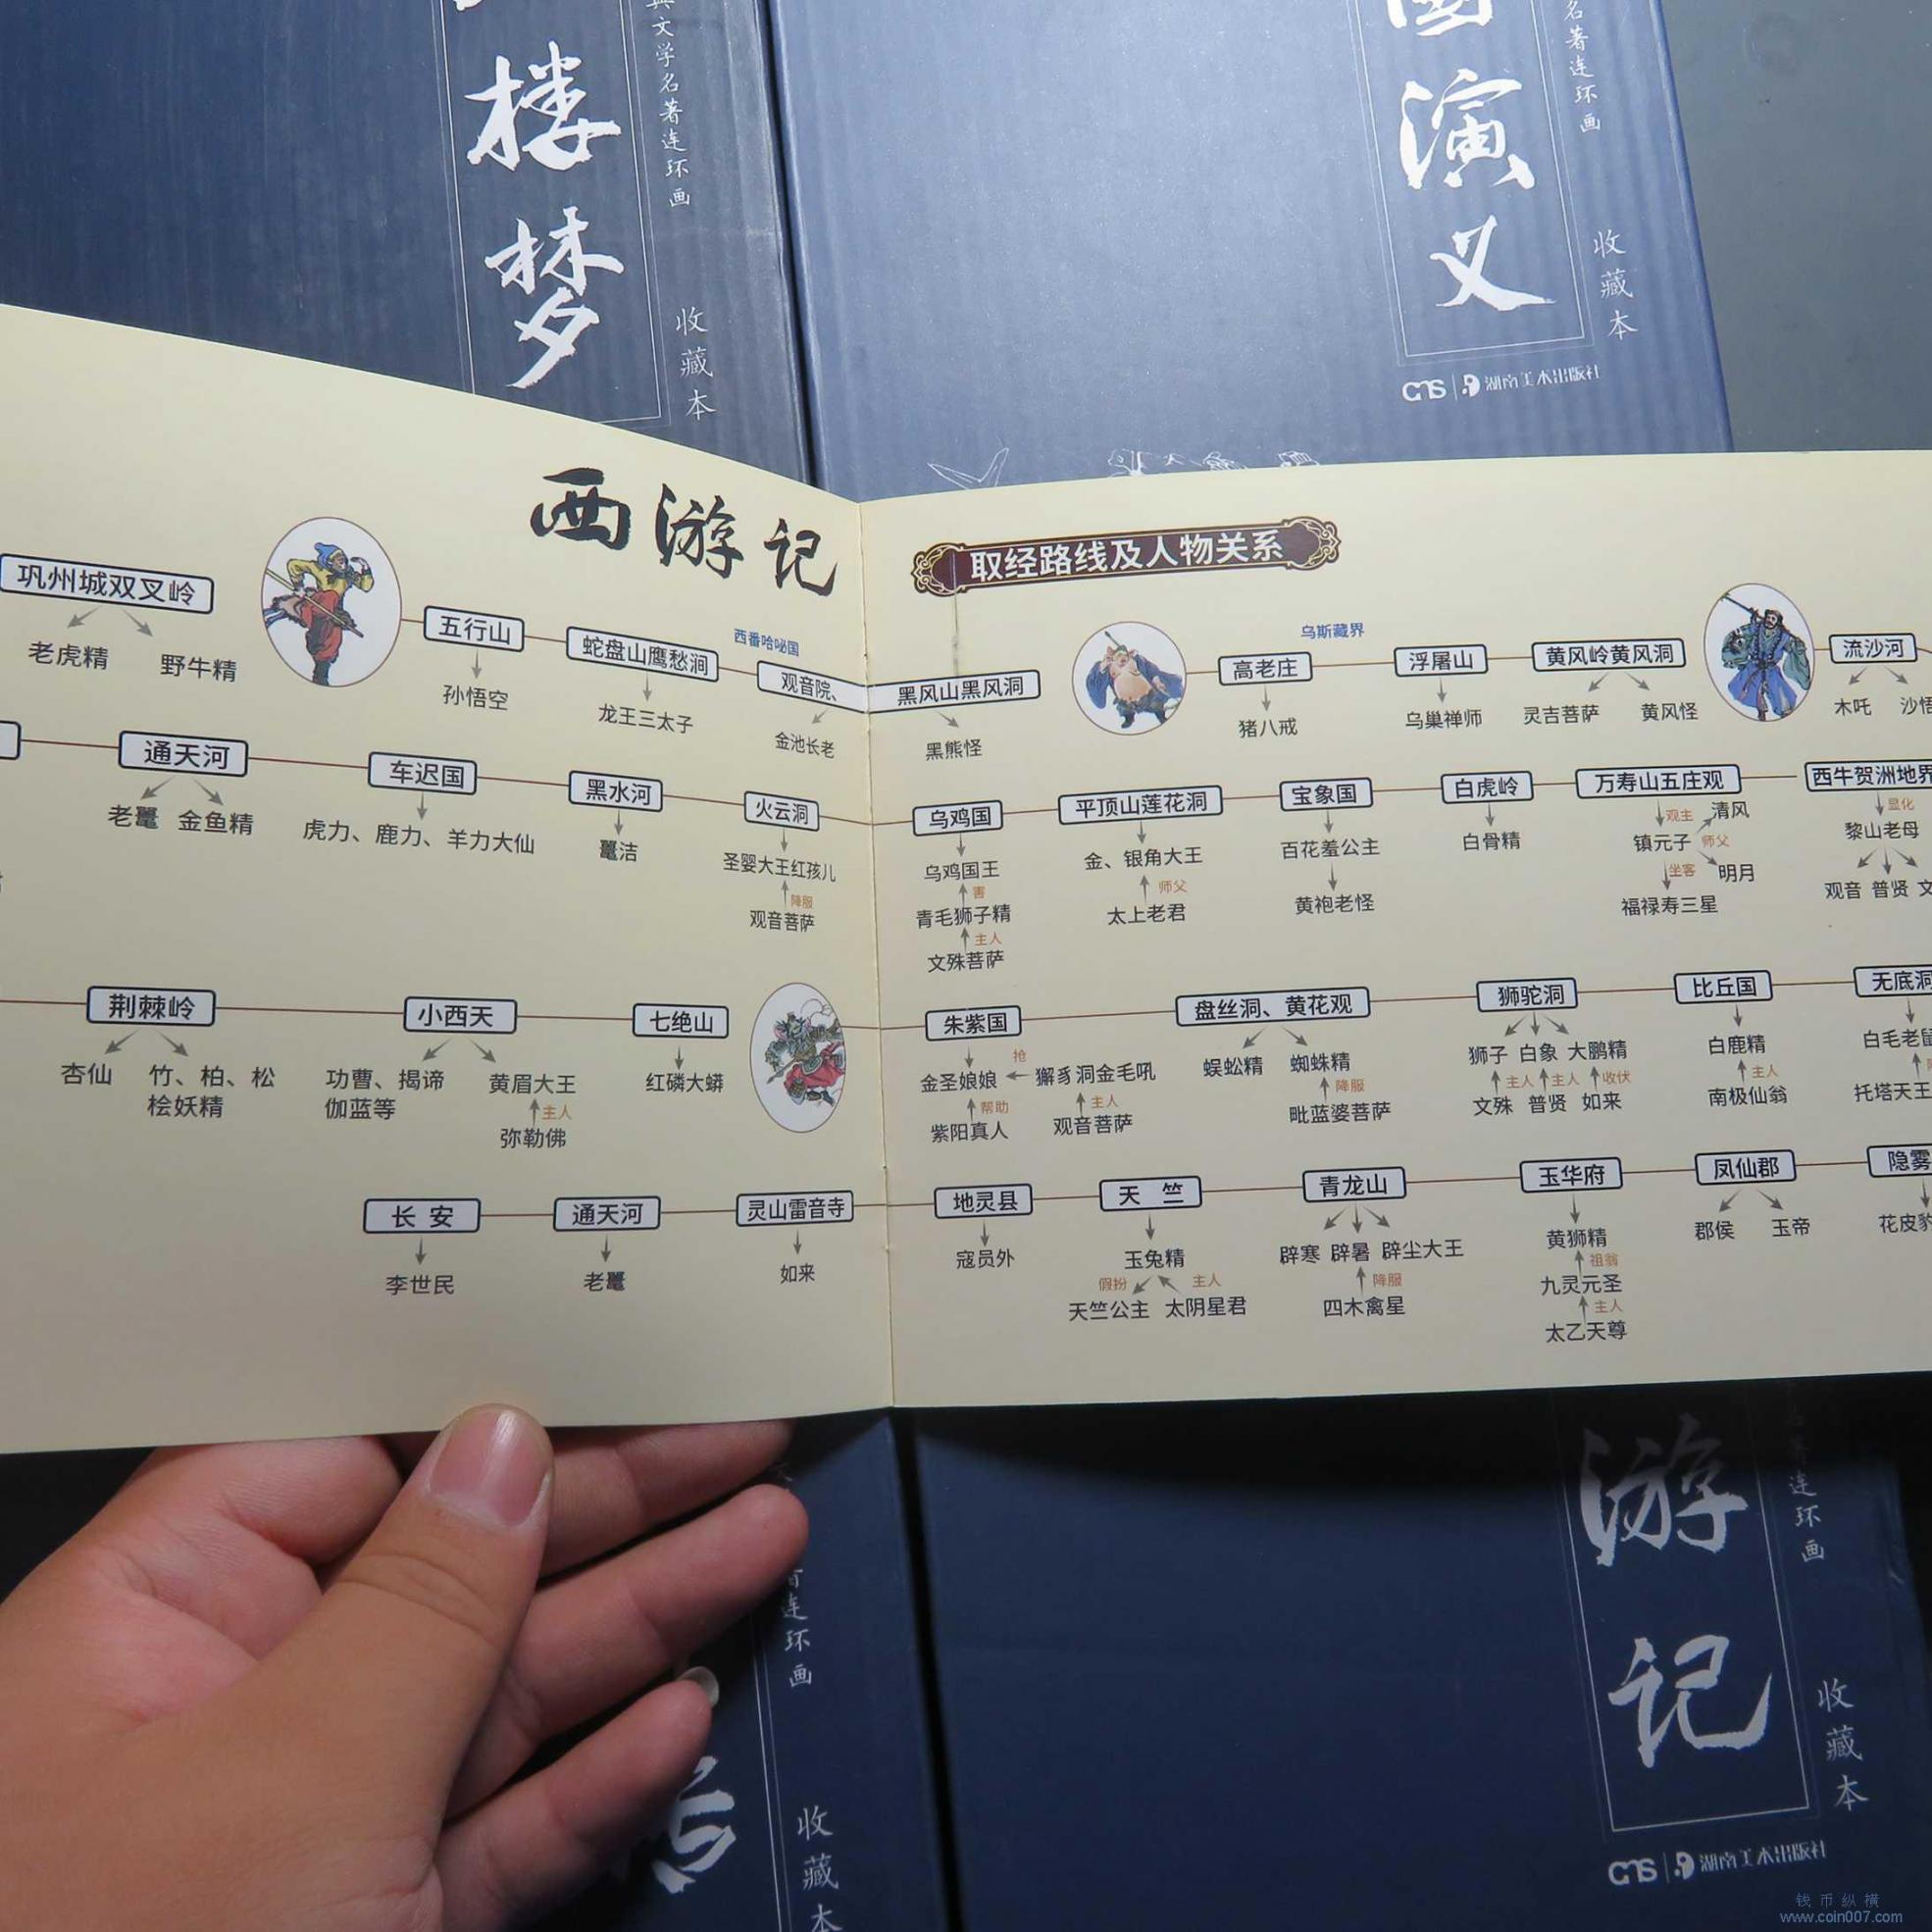 楼梦
典文学名著连环画
收藏本
演义
名著连环画
收藏本
湖南美术出版社
西游记
取经路线及人物关系
巩州城双叉岭
老虎精 野牛精
五行山
孙悟空
蛇盘山鹰愁涧
龙王三太子
西番哈咇国
观音院、黑风山黑风洞
金池长老 黑熊怪
高老庄
猪八戒
乌斯藏界
浮屠山
乌巢禅师
黄风岭黄风洞
灵吉菩萨 黄风怪
流沙河
木吒 沙悟
通天河
老鼍 金鱼精
车迟国
虎力、鹿力、羊力大仙
黑水河
鼍洁
火云洞
圣婴大王红孩儿
降服
观音菩萨
乌鸡国
乌鸡国王
害
青毛狮子精
主人
文殊菩萨
平顶山莲花洞
金、银角大王
师父
太上老君
宝象国
百花羞公主
黄袍老怪
白虎岭
白骨精
万寿山五庄观
观主 清风
镇元子 师父
坐客 明月
福禄寿三星
西牛贺洲地界
显化
黎山老母
观音 普贤 文
荆棘岭
杏仙 竹、柏、松
桧妖精
小西天
功曹、揭谛 黄眉大王
伽蓝等 主人
弥勒佛
七绝山
红磷大蟒
朱紫国
抢
金圣娘娘 獬豸洞金毛吼
帮助 主人
紫阳真人 观音菩萨
盘丝洞、黄花观
蜈蚣精 蜘蛛精
降服
毗蓝婆菩萨
狮驼洞
狮子 白象 大鹏精
主人 主人 收伏
文殊 普贤 如来
比丘国
白鹿精
主人
南极仙翁
无底洞
白毛老鼠
托塔天王
长安
李世民
通天河
老鼍
灵山雷音寺
如来
地灵县
寇员外
天竺
玉兔精
假扮 主人
天竺公主 太阴星君
青龙山
辟寒 辟暑 辟尘大王
降服
四木禽星
玉华府
黄狮精
祖翁
九灵元圣
主人
太乙天尊
凤仙郡
郡侯 玉帝
隐雾
花皮豹
著连环画
收藏本
游记
著连环画
收藏本
湖南美术出版社
钱币纵横
www.coin007.com